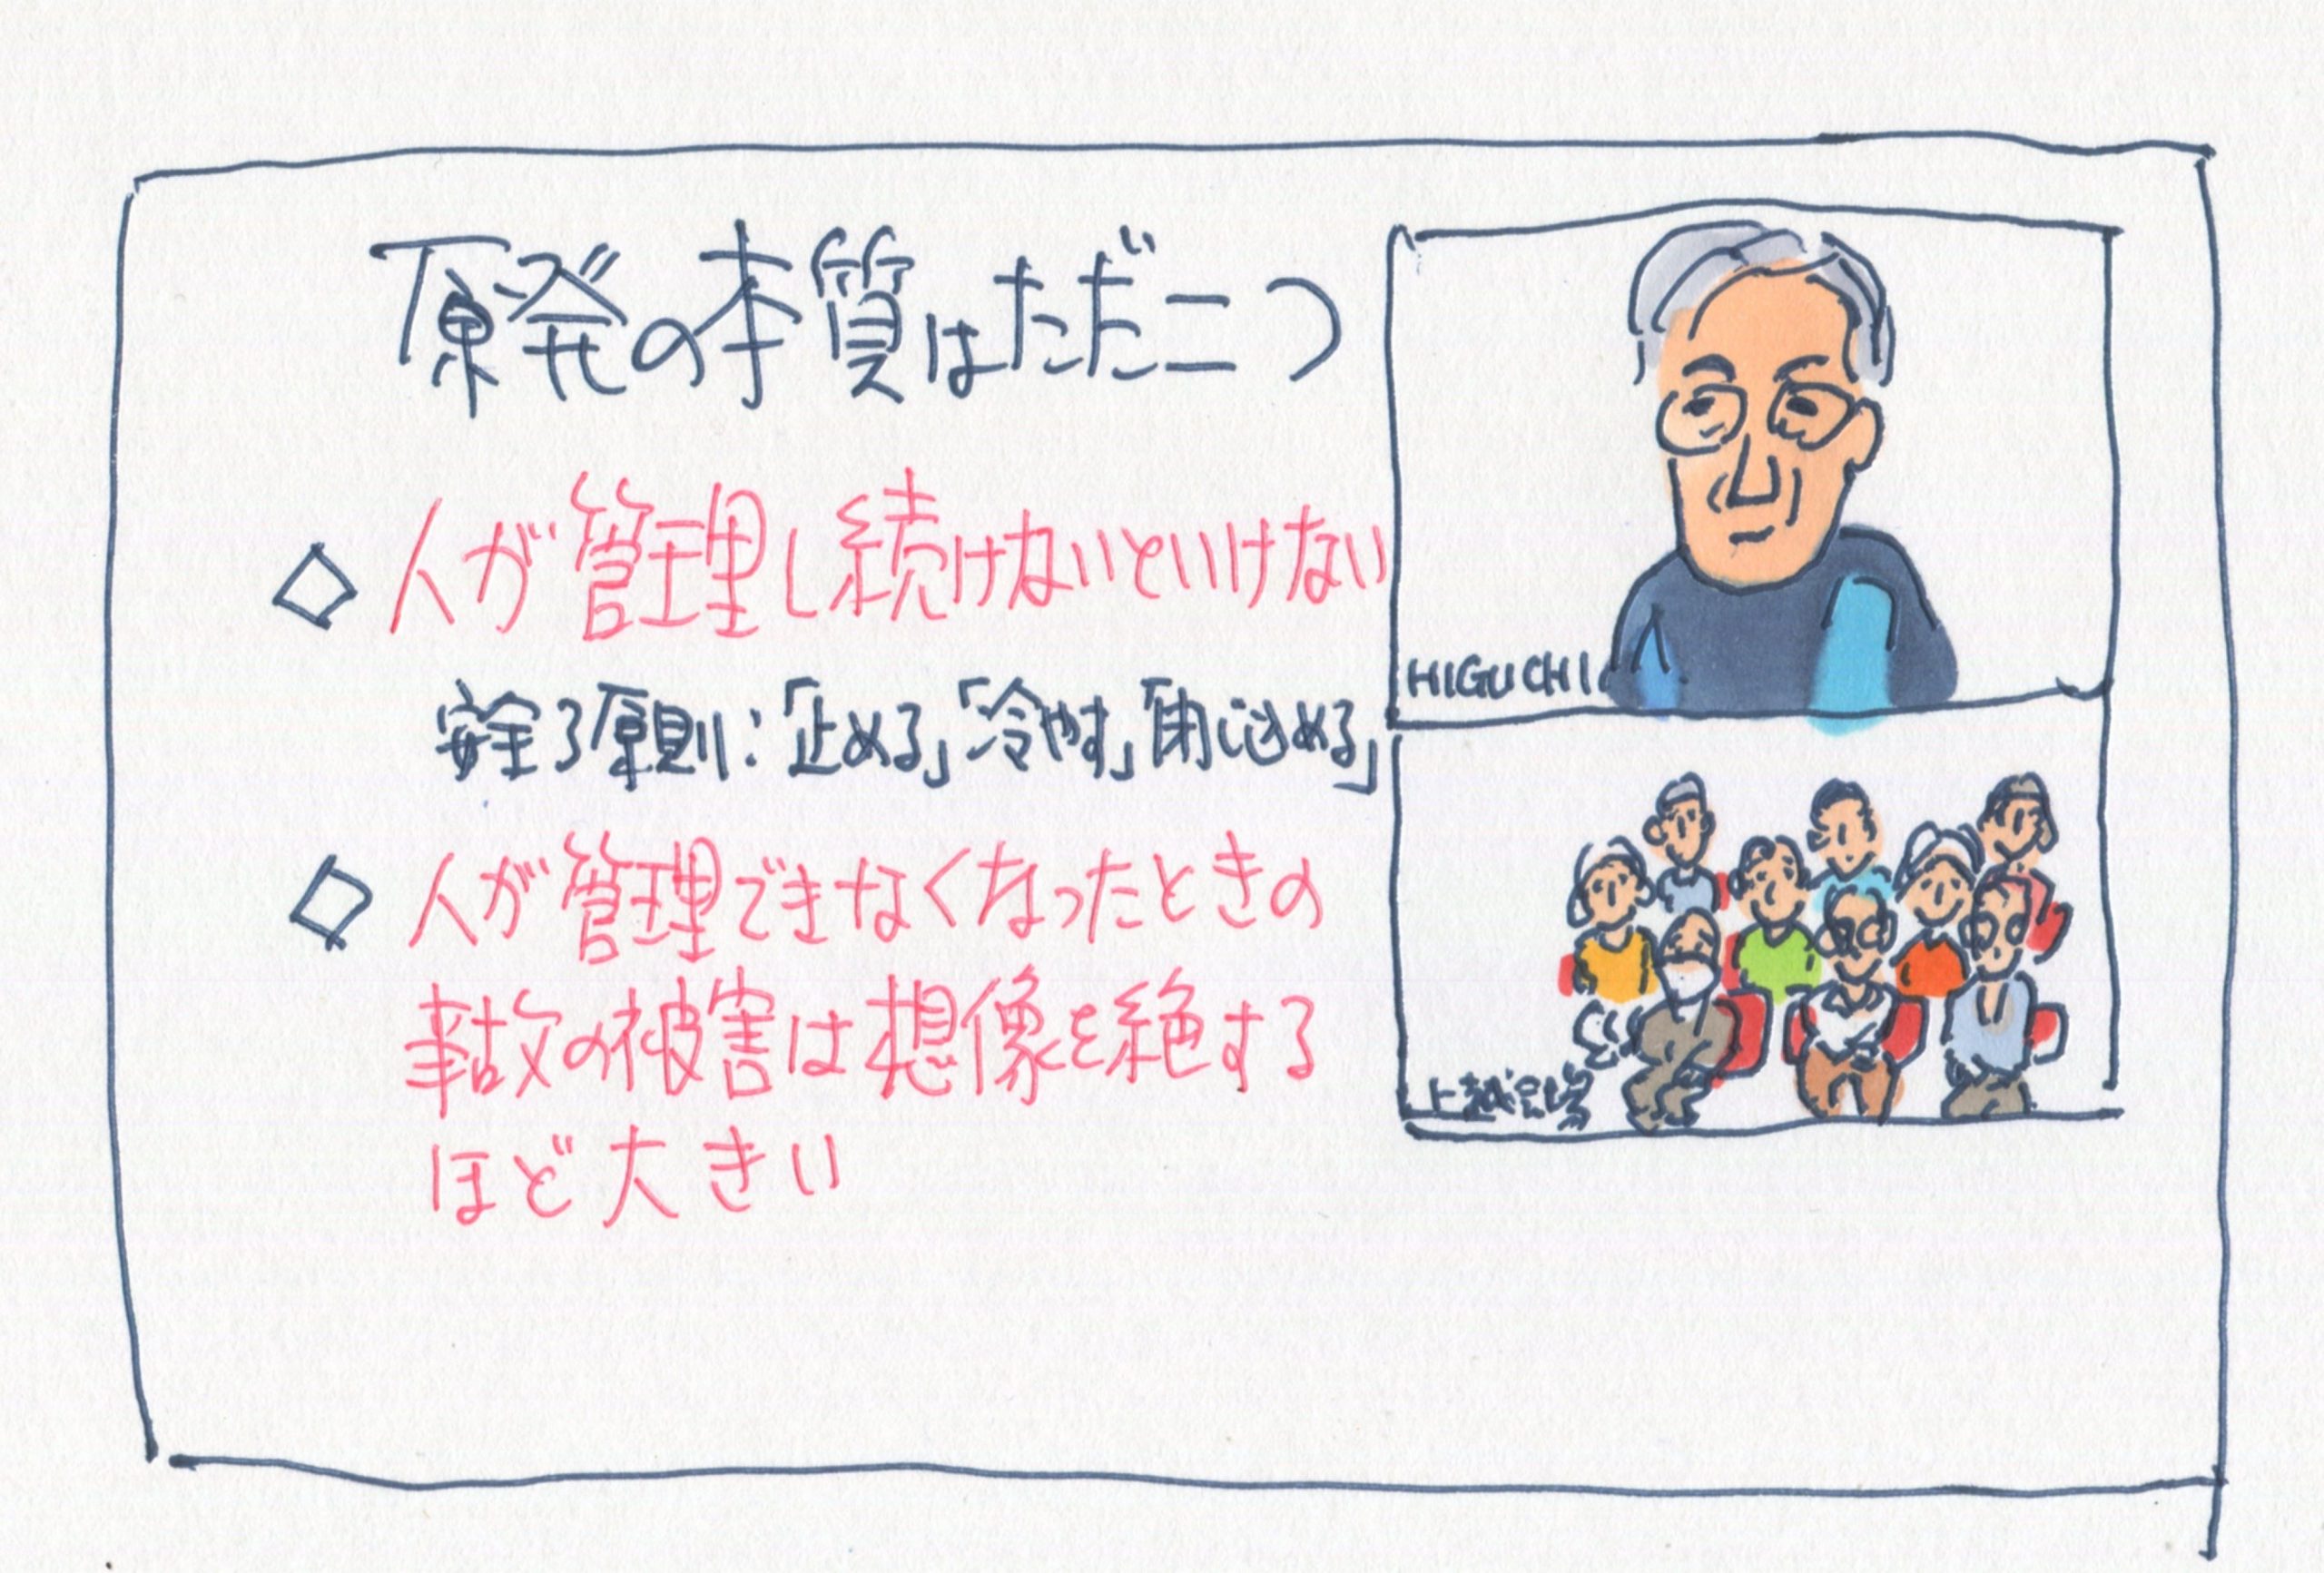 原発の本質はただ二つ
◇ 人が管理し続けないといけない
安全3原則:「止める」「冷やす」「閉じ込める」
◇ 人が管理できなくなったときの
事故の被害は想像を絶する
ほど大きい
HIGUCHI
上越会場